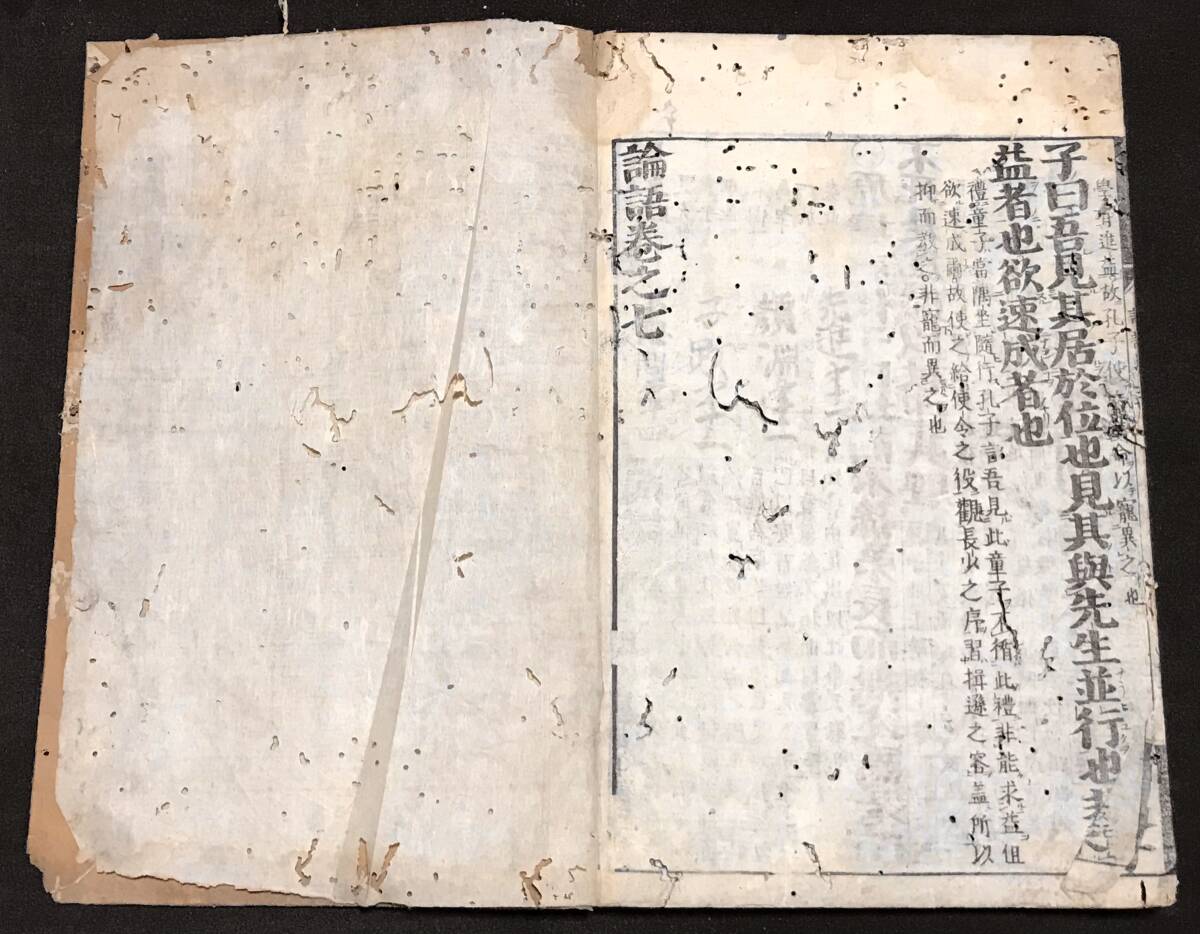 學有進益故孔子使　　以寵異之也
子曰吾見其居於位也見其與先生並行也非求
益者也欲速成者也
禮童子當隅坐隨行孔子言吾見此童子不循此禮非能求益但
欲速成爾故使之給使令之役觀長少之序習揖遜之容蓋所以
抑而敎之非寵而異之也
論語卷之七